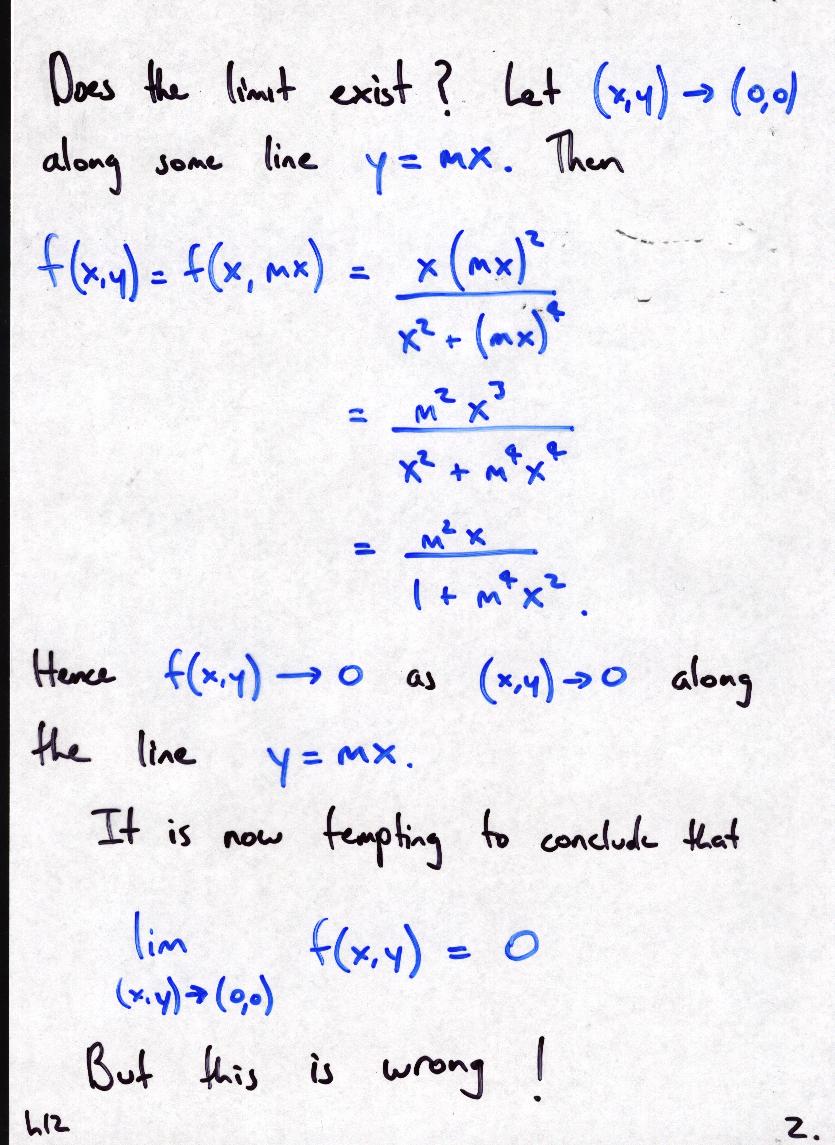 Does the limit exist? Let (x,y) → (0,0)
along some line y = mx. Then
f(x,y) = f(x, mx) = x(mx)² / x² + (mx)⁴
= m² x³ / x² + m⁴x⁴
= m² x / 1 + m⁴x².
Hence f(x,y) → 0 as (x,y) → 0 along
the line y = mx.
It is now tempting to conclude that
lim f(x,y) = 0
(x,y) → (0,0)
But this is wrong!
L12 2.